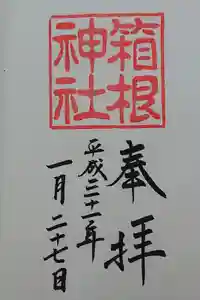 奉拝
箱根
神社
平成二十一年
一月二十七日